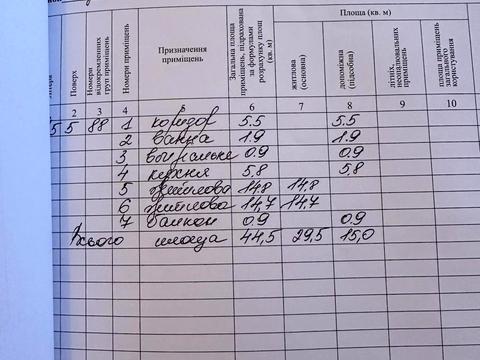 Площа (кв. м)
Поверх
Номери відокремлених груп приміщень
Номери приміщень
Призначення приміщень
Загальна площа приміщень, підрахована за формулами розрахунку площ (кв. м)
житлова (основна)
допоміжна (підсобна)
літніх, неопалювальних приміщень
площа приміщень загального користування
2 3 4 5 6 7 8 9 10
5 5 88 1 коридор 5.5 5.5
2 ванна 1.9 1.9
3 вбиральня 0.9 0.9
4 кухня 5,8 5,8
5 житлова 14,8 14,8
6 житлова 14,7 14,7
7 балкон 0.9 0.9
Усього площа 44,5 29,5 15,0